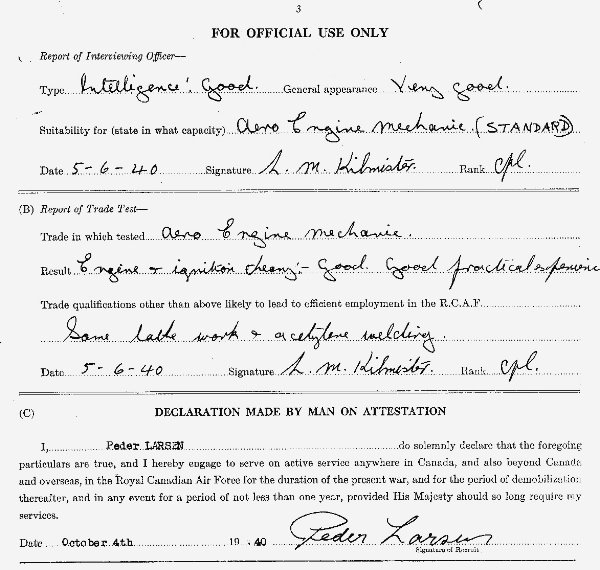 3
FOR OFFICIAL USE ONLY
Report of Interviewing Officer—
Type Intelligence: Good. General appearance Very good.
Suitability for (state in what capacity) Aero Engine Mechanic (STANDARD)
Date 5-6-40 Signature L. M. Kilmister. Rank Cpl.
(B) Report of Trade Test—
Trade in which tested Aero Engine Mechanic.
Result Engine & ignition theory:- Good. Good practical experience
Trade qualifications other than above likely to lead to efficient employment in the R.C.A.F.
Some lathe work & acetylene welding.
Date 5-6-40 Signature L. M. Kilmister. Rank Cpl.
(C) DECLARATION MADE BY MAN ON ATTESTATION
I, Peder LARSEN do solemnly declare that the foregoing
particulars are true, and I hereby engage to serve on active service anywhere in Canada, and also beyond Canada
and overseas, in the Royal Canadian Air Force for the duration of the present war, and for the period of demobilization
thereafter, and in any event for a period of not less than one year, provided His Majesty should so long require my
services.
Date October 4th 19 40 Peder Larsen
Signature of Recruit